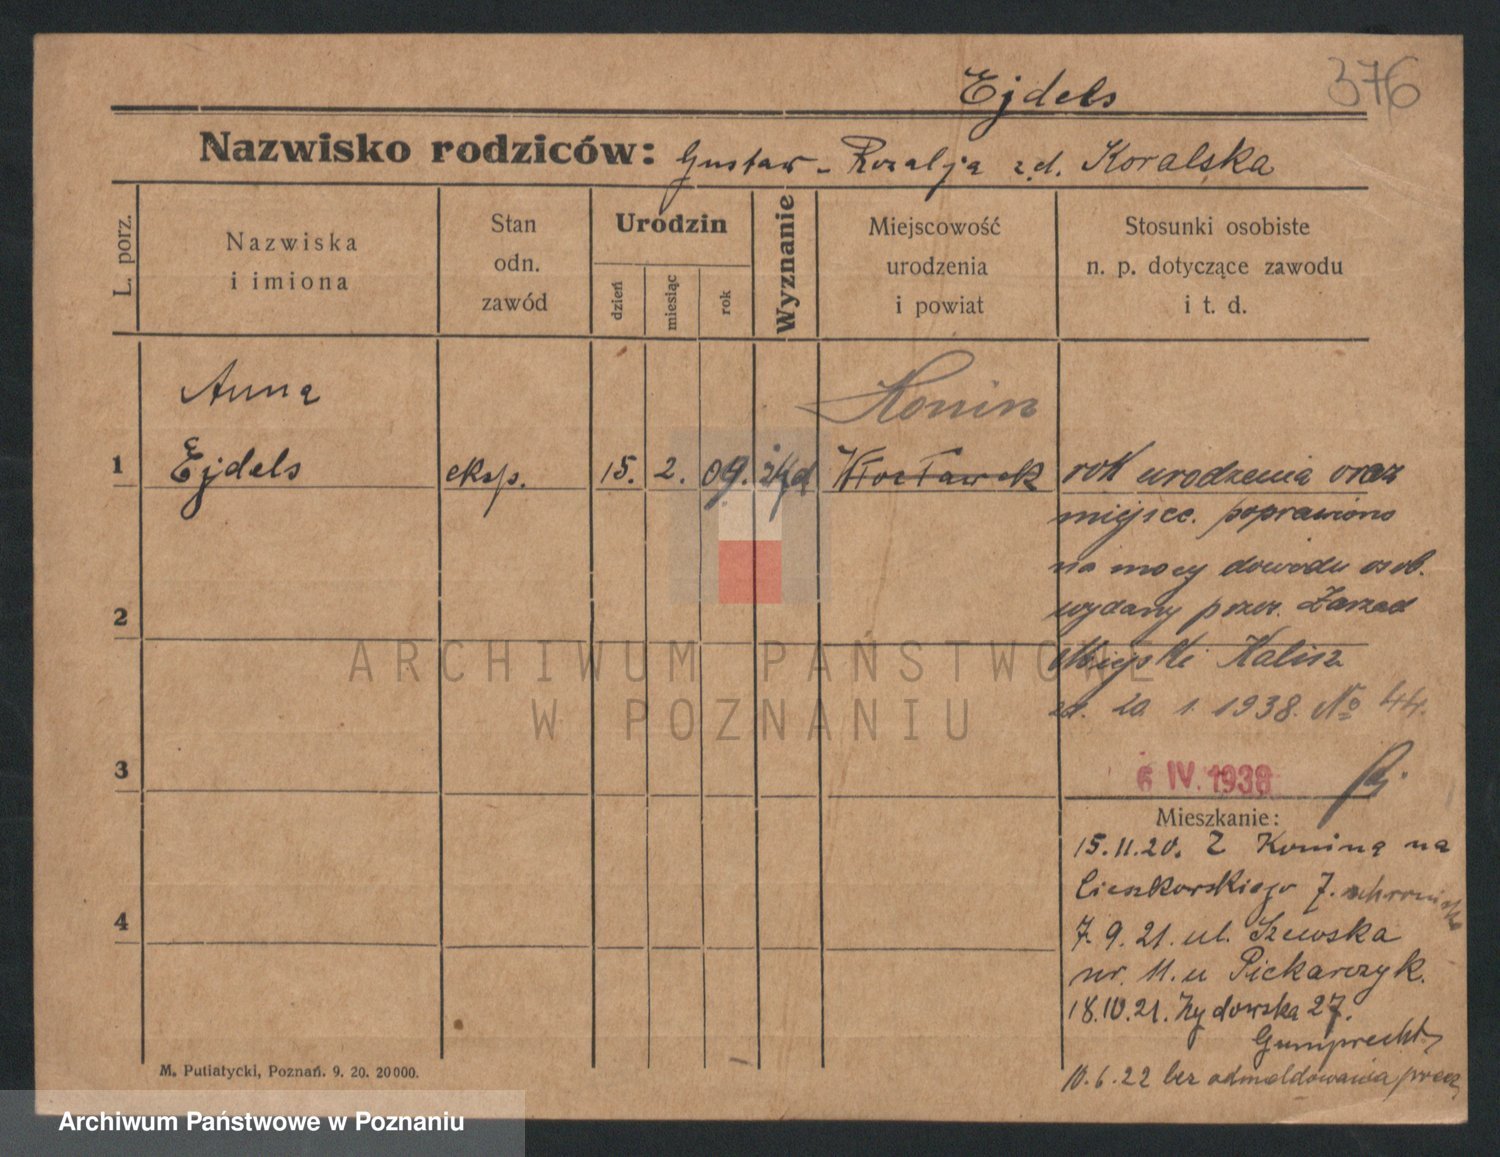 376
Ejdels
Nazwisko rodziców: Gustaw - Rozalja z.d. Koralska
L. porz.
Nazwiska
i imiona
Stan
odn.
zawód
Urodzin
dzień
miesiąc
rok
Wyznanie
Miejscowość
urodzenia
i powiat
Stosunki osobiste
n. p. dotyczące zawodu
i t. d.
Anna
Konin
1 Ejdels eksp. 15. 2. 09. żyd Włocławek rok urodzenia oraz
miejsc. poprawiono
na mocy dowodu osob.
wydany przez Zarząd
2
Miejski Kalisz
20. 1. 1938. No 44.
3
6 IV. 1938
Mieszkanie:
15.11.20. Z Konina na
Cieszkowskiego 7.
7. 9. 21. ul. Szewska
4
nr. 11. u Piekarczyk.
18.10.21. Żydowska 27.
Gumprecht
10.6.22 bez odmeldowania precz
M. Putiatycki, Poznań. 9. 20. 20000.
ARCHIWUM PAŃSTWOWE
W POZNANIU
Archiwum Państwowe w Poznaniu